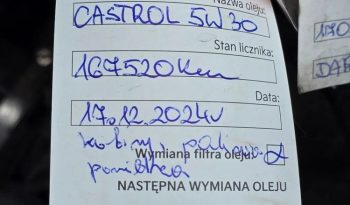 Nazwa oleju:
CASTROL 5W30
Stan licznika:
167520Km
Data:
17.12.2024r
kabiny, paliwa
Wymiana filtra oleju:
powietrza
NASTĘPNA WYMIANA OLEJU
170